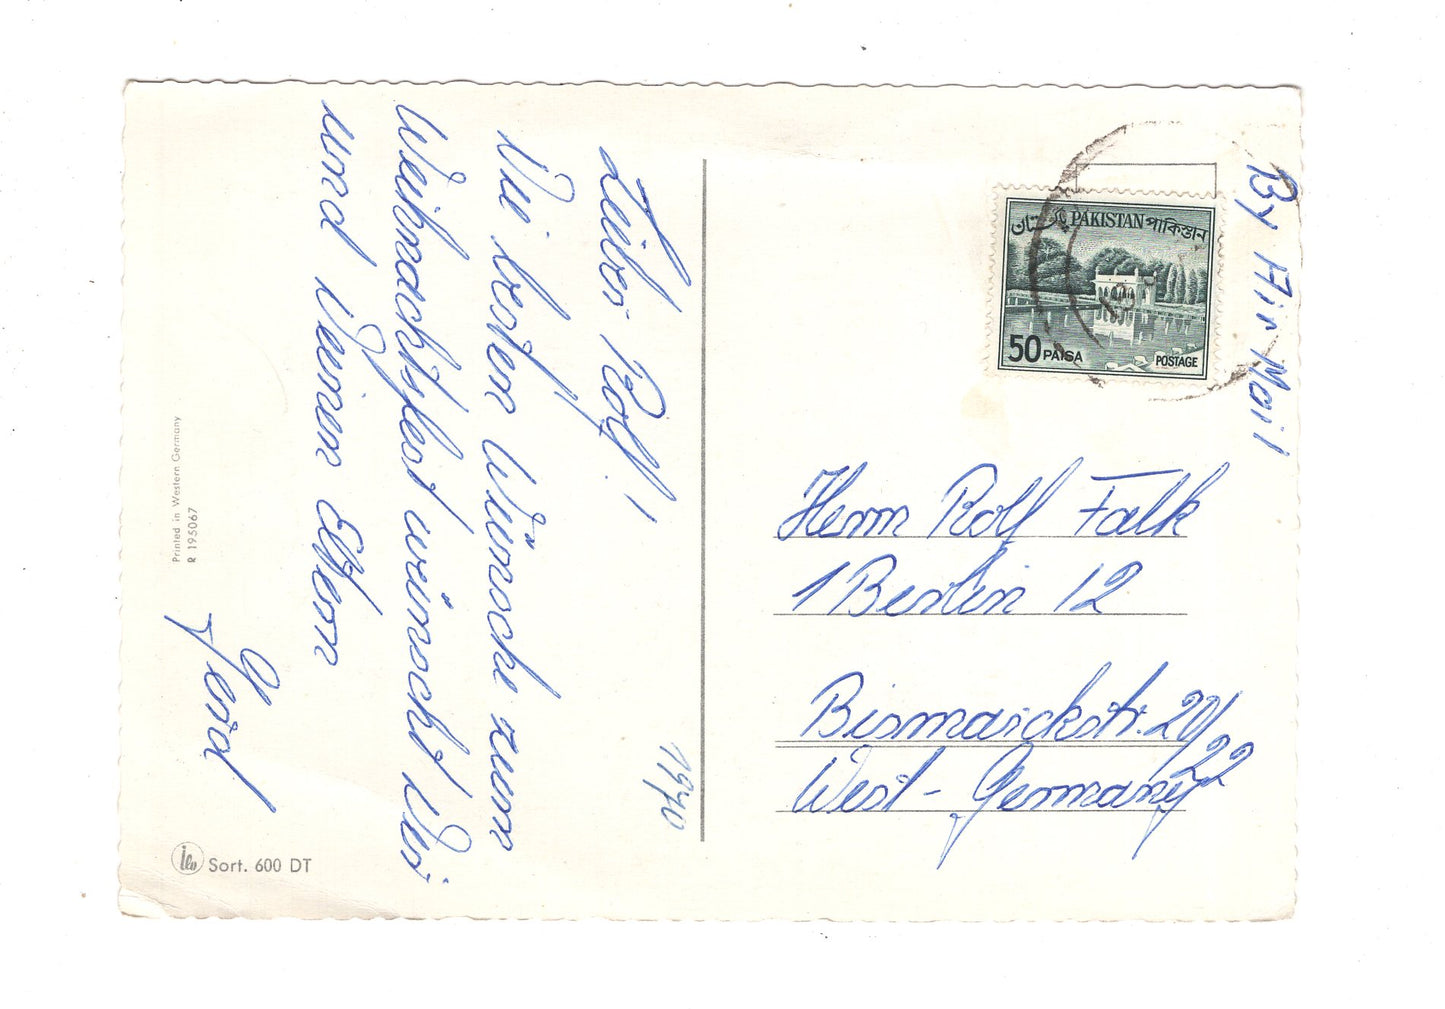 Lieber Rolf!
Die besten Wünsche zum
Weihnachtsfest wünscht Dir
und Deinen Eltern
Gerd
1970
Printed in Western Germany
R 195067
ilo Sort. 600 DT
پاکستان PAKISTAN পাকিস্তান
50 PAISA POSTAGE
By Air Mail
Herrn Rolf Falk
1 Berlin 12
Bismarckstr. 20/
22
West - Germany